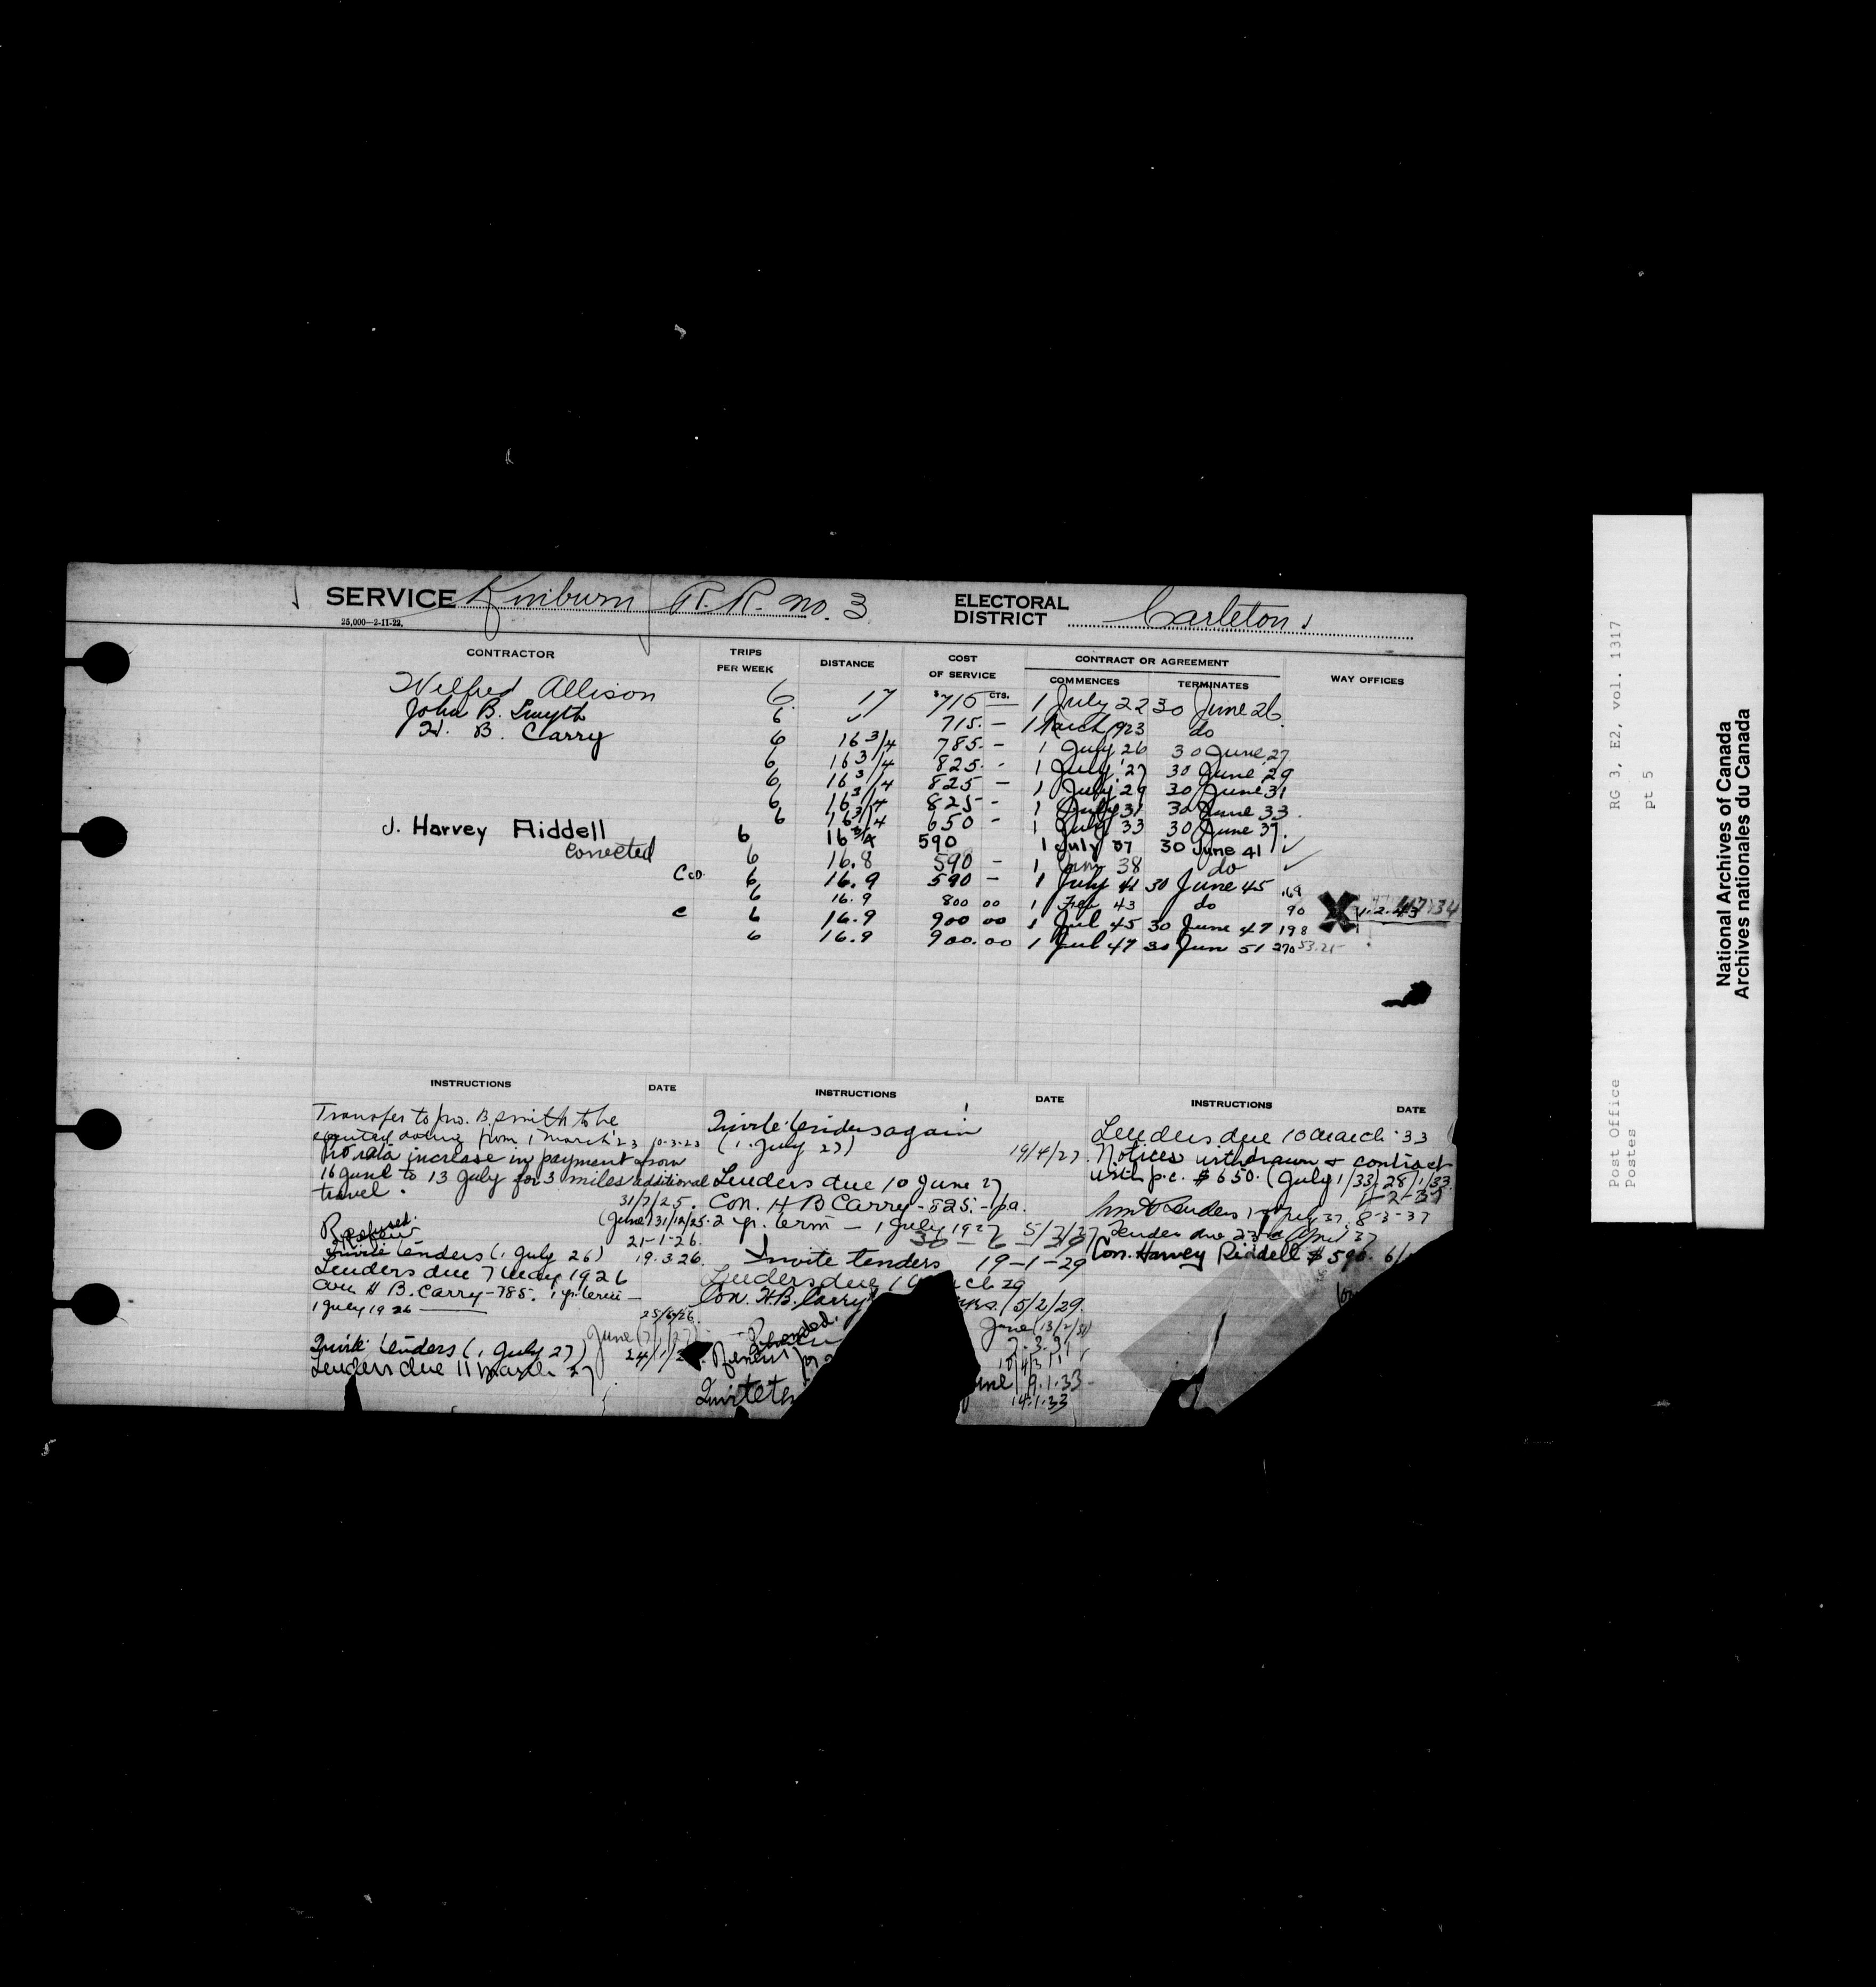 SERVICE Kinburn R.R. no. 3 ELECTORAL DISTRICT Carleton
25,000-2-11-22.
CONTRACTOR TRIPS PER WEEK DISTANCE COST OF SERVICE CONTRACT OR AGREEMENT WAY OFFICES
COMMENCES TERMINATES
Wilfred Allison 6 17 $715 CTS. — 1 July 22 30 June 26
John B. Smyth 6 ✓ 715. — 1 March 1923 do
H. B. Carry 6 16 3/4 785. — 1 July 26 30 June 27
6 16 3/4 825. - 1 July 27 30 June 29
6 16 3/4 825 — 1 July 29 30 June 31
6 16 3/4 825 - 1 July 31 30 June 33
6 16 3/4 650 - 1 July 33 30 June 37
J. Harvey Riddell 6 16 3/4 590 1 July 37 30 June 41 ✓
Corrected 6 16.8 590 - 1 Jan 38 do ✓
6 16.9 590 — 1 July 41 30 June 45 .69
6 16.9 800 00 1 Feb 43 do 90 X 1.2.43
C 6 16.9 900 00 1 Jul 45 30 June 47 198
6 16.9 900.00 1 Jul 47 30 Jun 51 270 53.21
INSTRUCTIONS DATE
Transfer to Jno. B. Smith to be
executed dating from 1 March '23 10-3-23
Pro rata increase in payment from
16 June to 13 July for 3 miles additional
travel. 31/7/25.
(June) 31/12/25.
Refused.
21-1-26.
Invite tenders (1 July 26) 19.3.26
Tenders due 7 May 1926
Con. H B. Carry - 785. 1 yr. term —
1 July 1926 25/6/26.
June (7/1/27)
Invite tenders (1 July 27)
Tenders due 11 March 27
INSTRUCTIONS DATE
Invite tenders again
(1 July 27) 19/4/27
Tenders due 10 June 27
Con. H B Carry - 825. - p.a.
2 yr. term — 1 July 1927 5/7/27
30 — 6 — 29
Invite tenders 19-1-29
Tenders due 1
Con. H.B. Carry yrs. 15/2/29.
June (13/2/31)
7.3.31
Renew
Invite ten
19.1.33
INSTRUCTIONS DATE
Tenders due 10 March 33
Notices withdrawn & contract
with p.c. $650. (July 1/33) 28/1/33
1-2-37
8-3-37
Tenders due 23rd April 37
Con. Harvey Riddell $590. 6/
Post Office
Postes
RG 3, E2, vol. 1317
pt 5
National Archives of Canada
Archives nationales du Canada